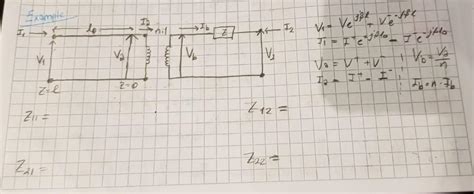 Example
I₁ l₀ I₂ n:1 I_b Z I₂
V₁ V₂ V_b V₂
Z=-l Z=0
V₁ = V e^{jβl} + V⁻ e^{-jβl}
I₁ = I⁺ e^{-jβl₀} - I⁻ e^{-jβl₀}
V₂ = V⁺ + V⁻ V_b = V₂/n
I₂ = I⁺ - I⁻ I_b = n · I_b
Z₁₁ =
Z₁₂ =
Z₂₁ =
Z₂₂ =